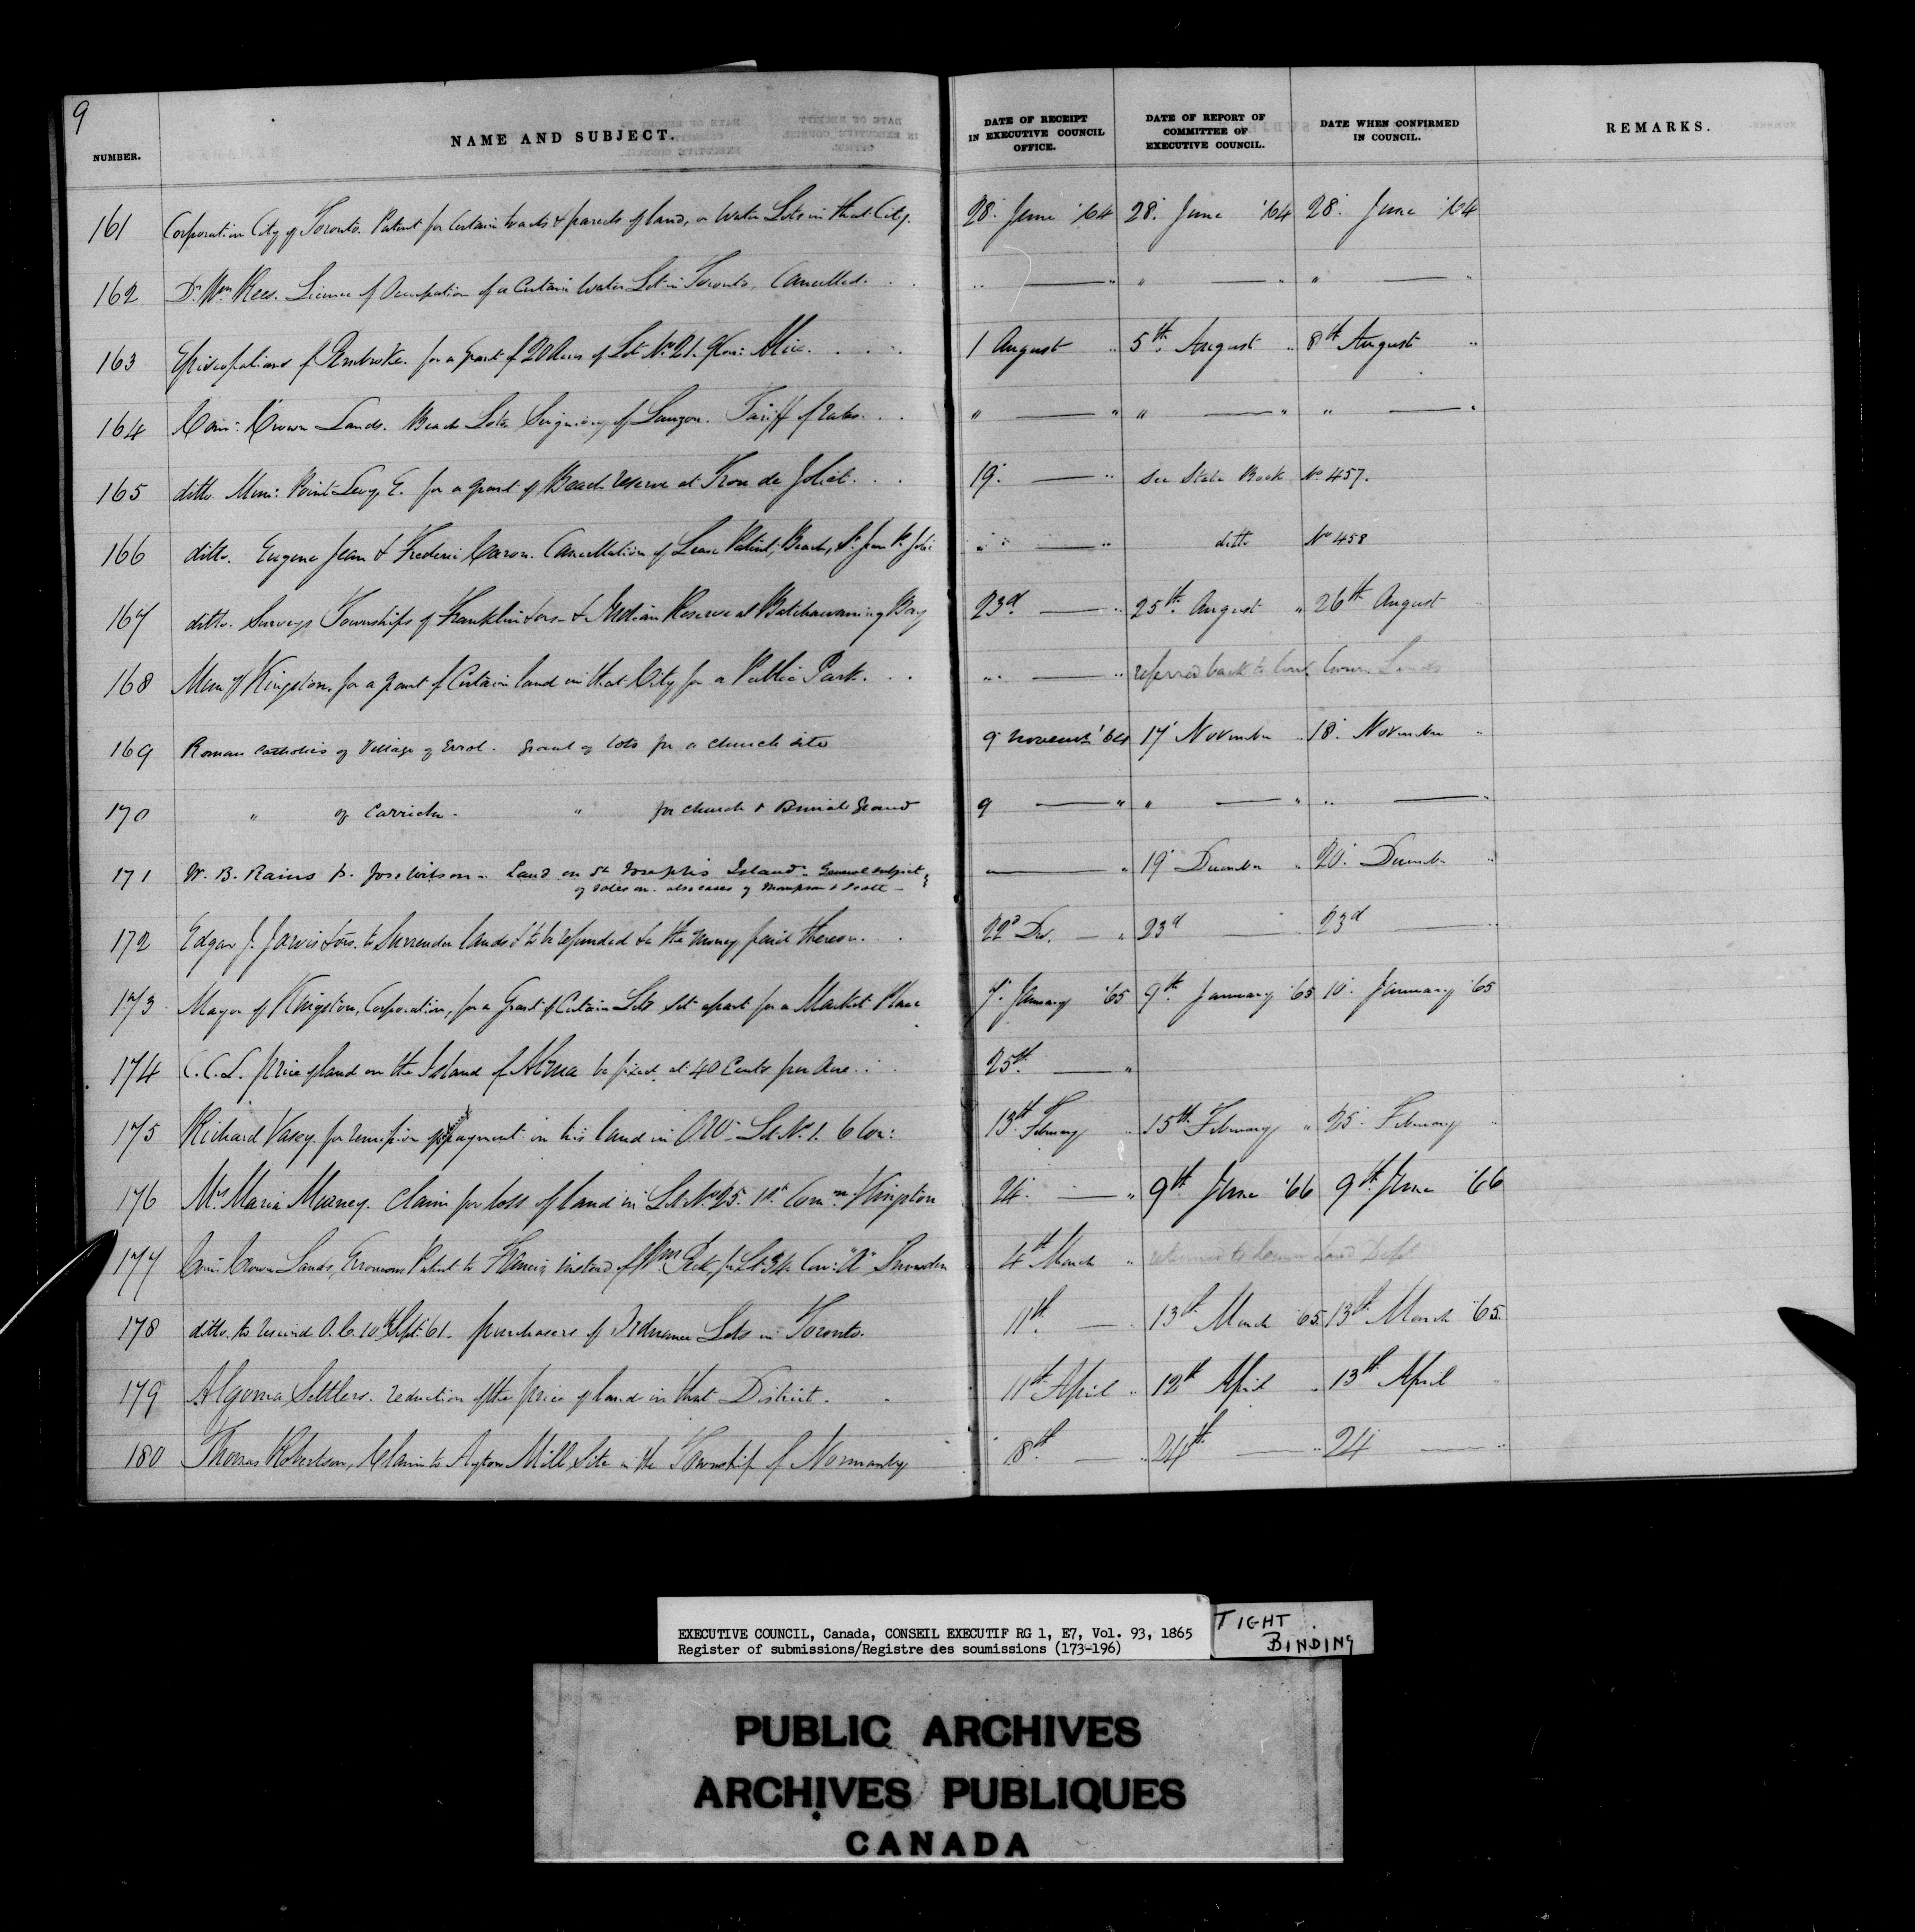 9
NUMBER. NAME AND SUBJECT. DATE OF RECEIPT IN EXECUTIVE COUNCIL OFFICE. DATE OF REPORT OF COMMITTEE OF EXECUTIVE COUNCIL. DATE WHEN CONFIRMED IN COUNCIL. REMARKS.
161 Corporation City of Toronto. Patent for Certain tracts & parcels of land, or Water Lots in that City. 28. June '64 28. June '64 28. June '64
162 Dr. Wm Rees. Licence of Occupation of a Certain Water Lot in Toronto, Cancelled. . . " — " " — " " — "
163 Episcopalians of Pembroke. for a Grant of 20 Acres of Lot No. 21. . . . 1 August " 5th August " 8th August "
164 Com: Crown Lands. Beach Lots Seigniory of Lauzon. Tariff of rates. . . " — " " — " " — "
165 ditto. Mun: Point Levy E. for a grant of Beach reserve at Trou de Joliet. . . 19. — " see State Book No. 457.
166 ditto. Eugene Jean & Frederic Caron. Cancellation of Lease Patent, Beach, St. Jean P. Joli: " — " ditto No 458
167 ditto. Surveys Townships of Franklin & ors- & Indian Reserve at Batchawaning Bay 23d. — " 25th August " 26th August "
168 Mun of Kingston, for a grant of Certain land in that City for a Public Park. . . " — " referred back to Crown Lands
169 Roman Catholics of Village of Errol. Grant of lots for a church site 9 November '64 17 November " 18. November "
170 " of Carrick. " for Church & Burial Ground 9 — " " — " " — "
171 W. B. Rains & Jos. Wilson - Land on St. Joseph's Island - General subject
of sales on. also cases of Thompson & Scott — — " 19 December " 20. December "
172 Edgar J. Jarvis & ors. to Surrender lands & to be refunded the money paid thereon. . . 22d Dec. — " 23d — 23d — "
173 Mayor of Kingston, Corporation, for a Grant of Certain Lots set apart for a Market Place 7. January '65 9th. January '65 10. January '65
174 C.C.L. price of land on the Island of Alma be fixed at 40 Cents per Acre. . . 25th. — "
175 Richard Vasey. for remission of payment on his land in Lot No. 1. 6 Con: 13th February " 15th February " 25. February "
176 Mrs Maria Murney. Claim for loss of land in Lot No. 25. 1st. Conn. Kingston 24. — " 9th June '66 9th June '66
177 Com: Crown Lands, Erroneous Patent to Francis instead of Wm. Peck, for Lt. 34 Con: "A" Snowden 4th March " returned to Crown Land Dept
178 ditto. to rescind O.C. 10 Sept. '61 - purchasers of Ordnance Lots in Toronto. 11th. — 13th March '65. 13th March '65.
179 Algoma Settlers. reduction of the price of land in that District. . 11th April " 12th April " 13th April "
180 Thomas Robertson, Claim to Ayton Mill Site in the Township of Normanby 18th. — " 24th — " 24 — "
EXECUTIVE COUNCIL, Canada, CONSEIL EXECUTIF RG 1, E7, Vol. 93, 1865
Register of submissions/Registre des soumissions (173-196)
TIGHT
BINDING
PUBLIC ARCHIVES
ARCHIVES PUBLIQUES
CANADA